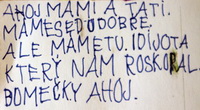 AHOJ MAMI A TATI.
MÁMESEDODOBŘE.
ALE MÁMETU. IDIJOTA
KTERÝ NÁM ROSKOPAL.
DOMEČKY AHOJ.